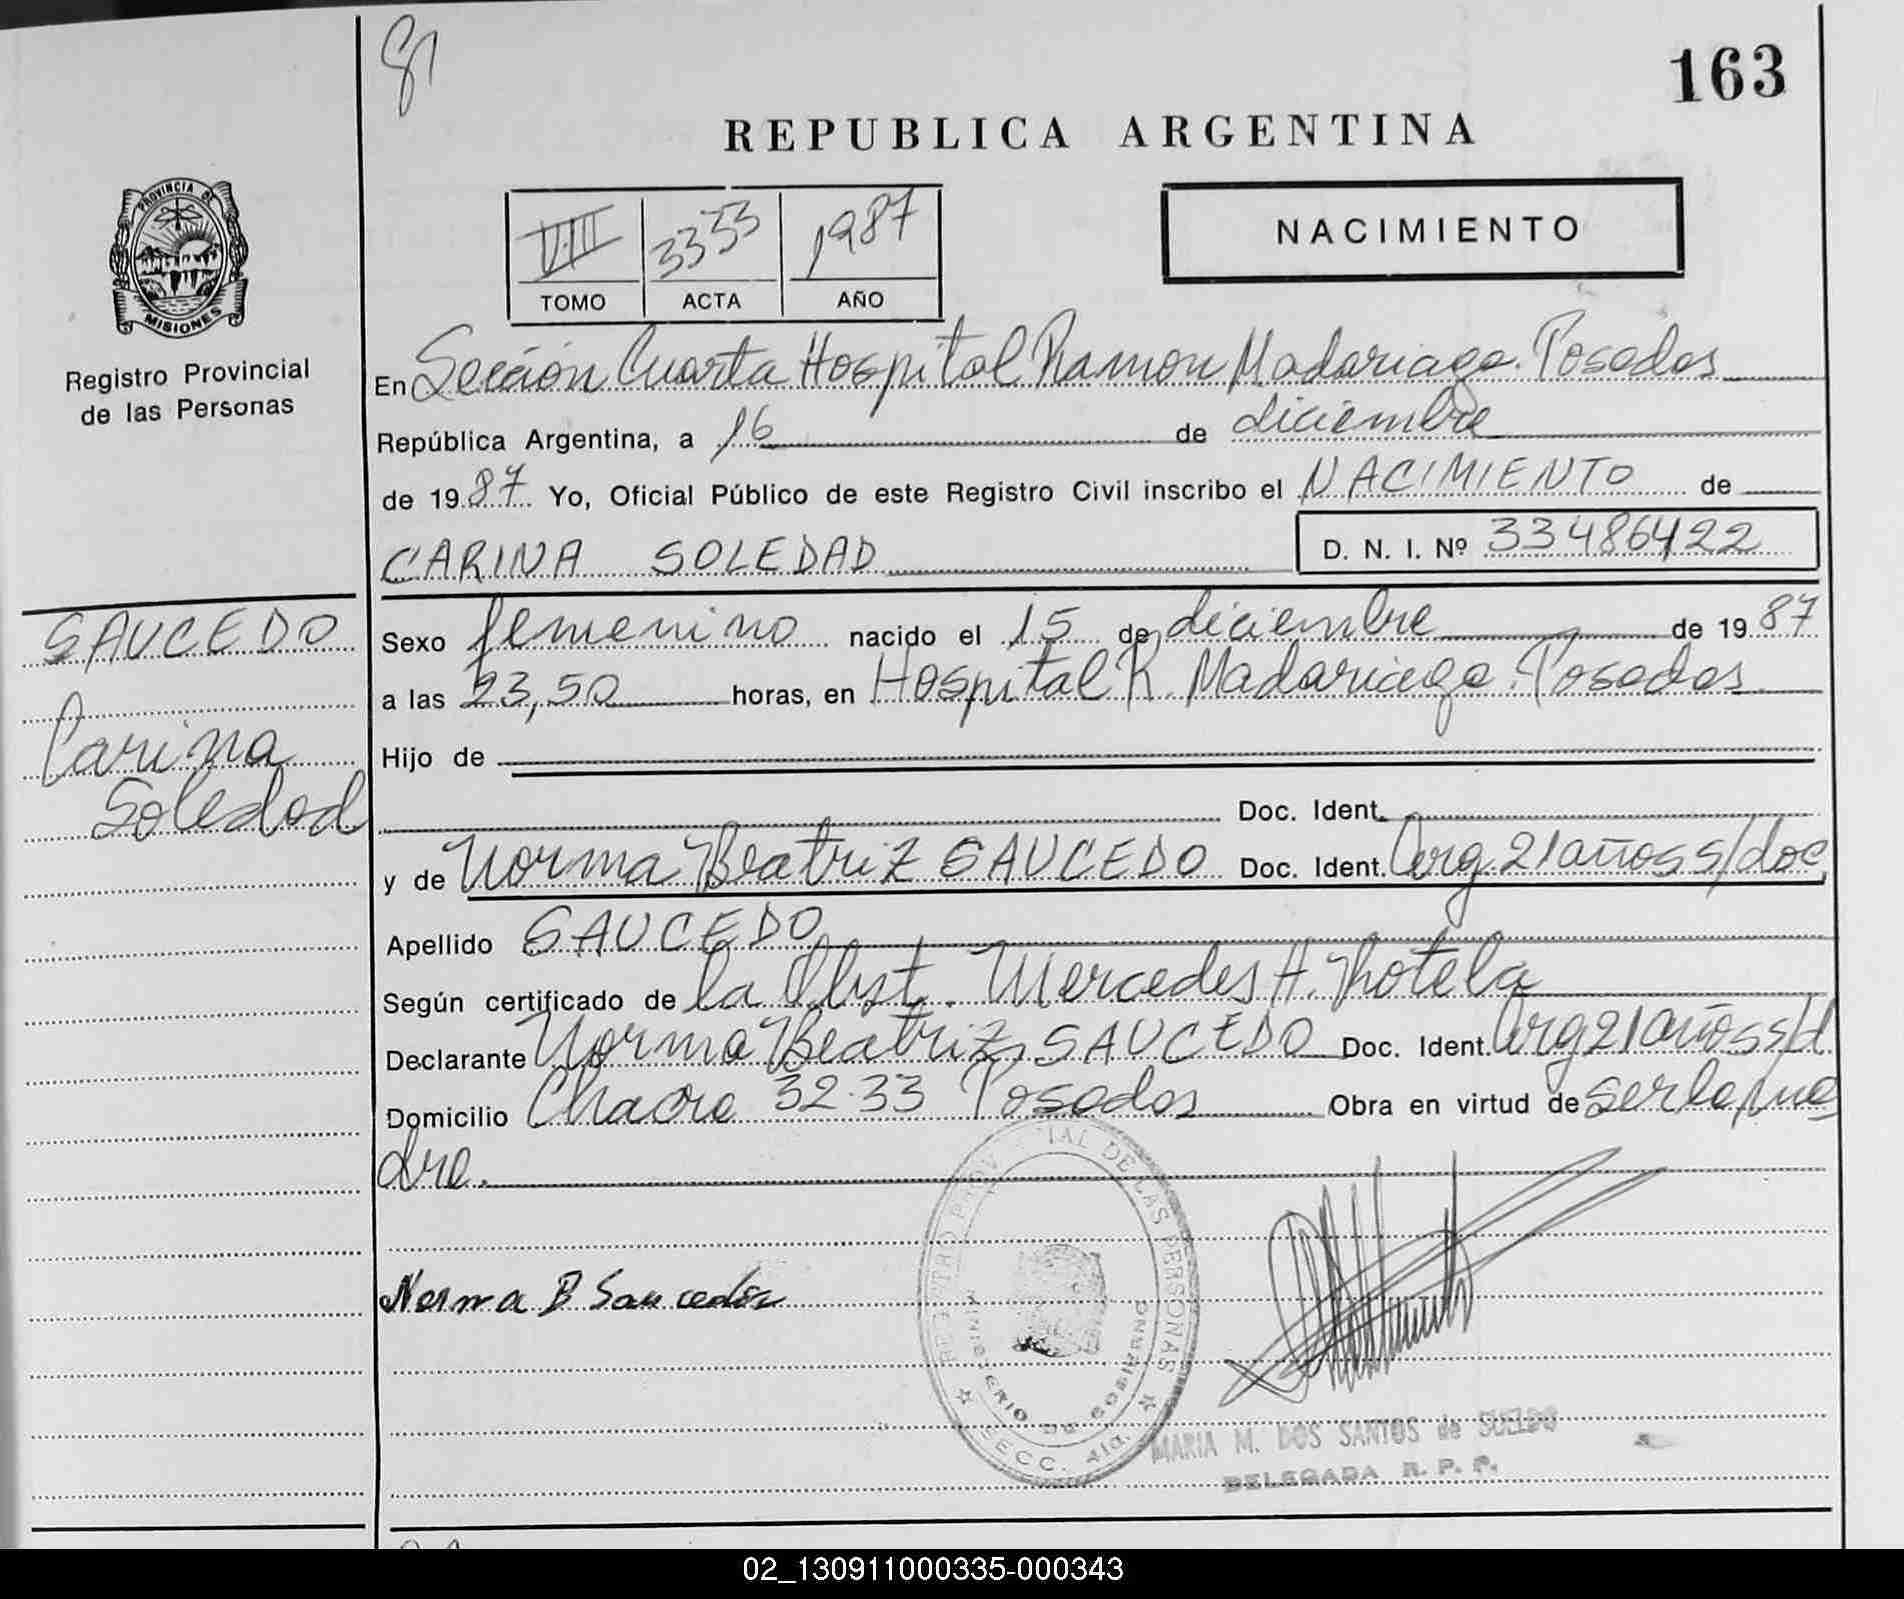 81
163
REPUBLICA ARGENTINA
PROVINCIA DE
MISIONES
Registro Provincial
de las Personas
VIII 3353 1987
TOMO ACTA AÑO
NACIMIENTO
En Sección Cuarta Hospital Ramon Madariaga. Posadas
República Argentina, a 16 de diciembre
de 1987 Yo, Oficial Público de este Registro Civil inscribo el NACIMIENTO de
CARINA SOLEDAD D. N. I. Nº 33486422
SAUCEDO
Carina
Soledad
Sexo femenino nacido el 15 de diciembre de 1987
a las 23,50 horas, en Hospital R. Madariaga. Posadas
Hijo de
Doc. Ident.
y de Norma Beatriz SAUCEDO Doc. Ident. Arg. 21 años s/doc
Apellido SAUCEDO
Según certificado de la Obst. Mercedes H.
Declarante Norma Beatriz SAUCEDO Doc. Ident. Arg 21 años s/d
Domicilio Chacra 32-33 Posadas Obra en virtud de ser la ma
dre.
Norma B Saucedo
REGISTRO PROVINCIAL DE LAS PERSONAS
MINISTERIO DE GOBIERNO
SECC. 4ta.
MARIA M. DOS SANTOS de SUELDO
DELEGADA R. P. P.
02_130911000335-000343